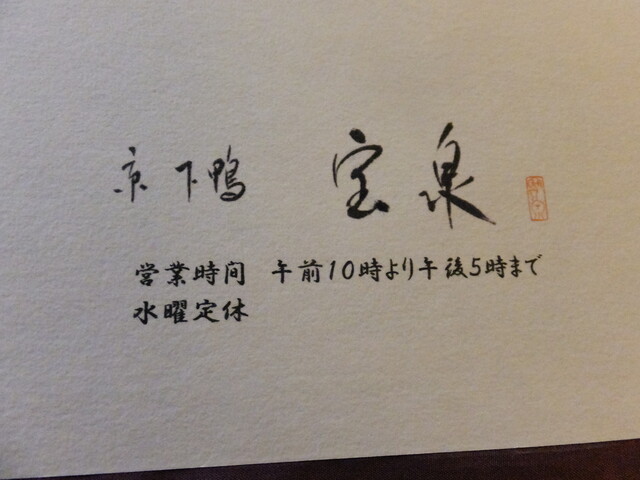 京 下鴨 宝泉
営業時間 午前10時より午後5時まで
水曜定休